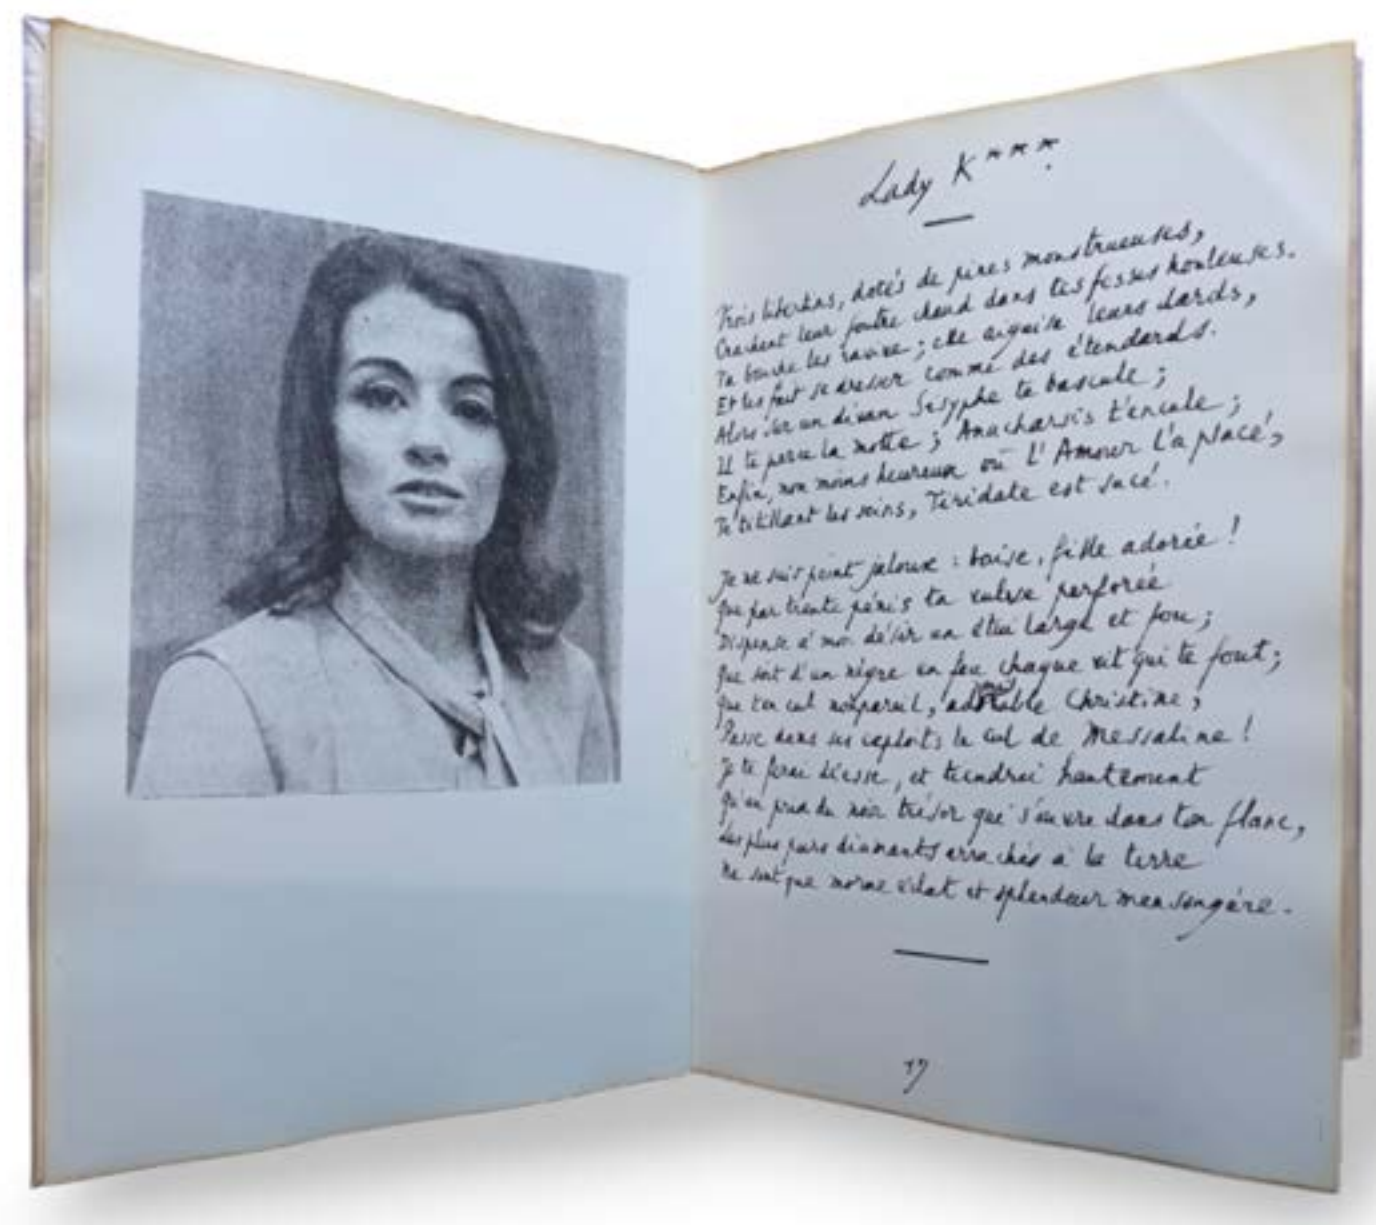 Lady K***.
Trois libertins, dotés de pines monstrueuses,
Crachent leur foutre chaud dans tes fesses honteuses.
Ta bouche les ravive ; elle aiguise leurs dards,
Et les fait se dresser comme des étendards.
Alors sur un divan Sisyphe te bascule ;
Il te perce la motte ; Anacharsis t'encule ;
Enfin, non moins heureux où l'Amour l'a placé,
Te titillant les seins, Tiridate est sucé.
Je ne suis point jaloux : baise, fille adorée !
Que par trente pénis ta vulve perforée
Dispense à mon désir un étui large et fou ;
Que soit d'un nègre en feu chaque vit qui te fout ;
Que ton cul nonpareil, adorable Christine,
Passe dans ses exploits le cul de Messaline !
Je te ferai déesse, et tiendrai hautement
Qu'au prix du noir trésor qui s'ouvre dans ton flanc,
Les plus purs diamants arrachés à la terre
Ne sont que morne éclat et splendeur mensongère.
17